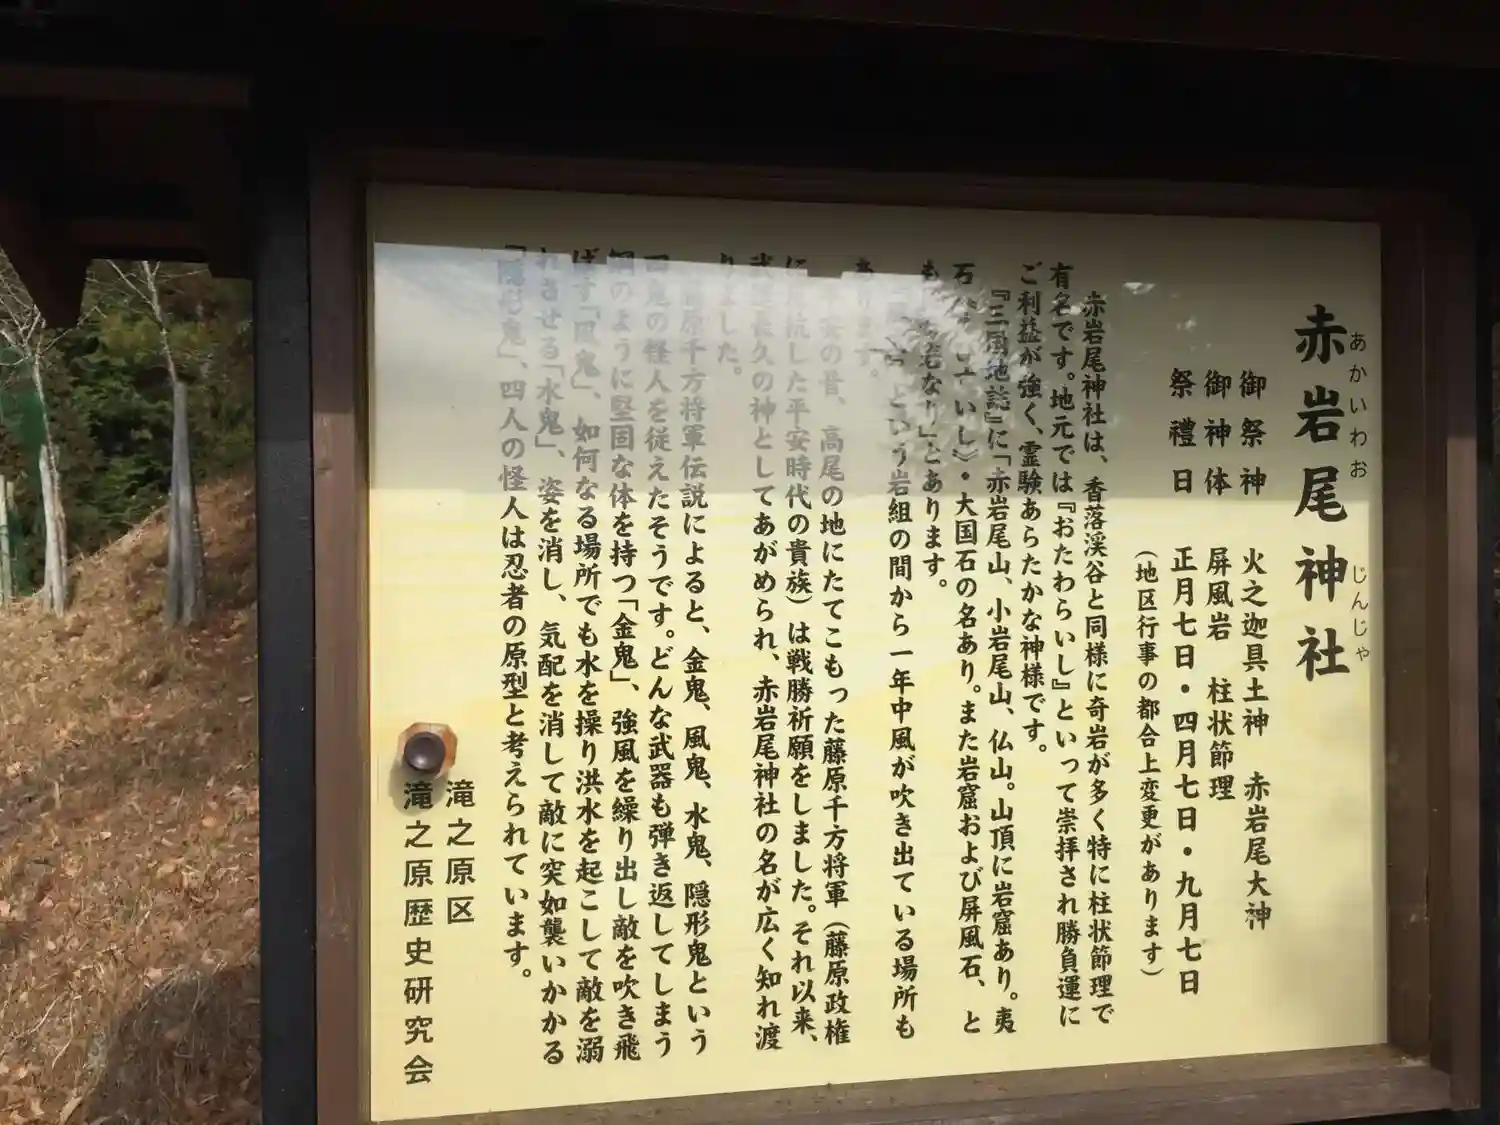 赤岩尾神社
あかいわお じんじゃ
御祭神 火之迦具土神 赤岩尾大神
御神体 屏風岩 柱状節理
祭禮日 正月七日・四月七日・九月七日
(地区行事の都合上変更があります)
赤岩尾神社は、香落渓谷と同様に奇岩が多く特に柱状節理で
有名です。地元では『おたわらいし』といって崇拝され勝負運に
ご利益が強く、霊験あらたかな神様です。
『三国地誌』に「赤岩尾山、小岩尾山、仏山。山頂に岩窟あり。夷
石 いし》・大国石の名あり。また岩窟および屏風石、と
も 名なり」とあります。
という岩組の間から一年中風が吹き出ている場所も
あります。
の昔、高尾の地にたてこもった藤原千方将軍(藤原政権
に抗した平安時代の貴族)は戦勝祈願をしました。それ以来、
武運長久の神としてあがめられ、赤岩尾神社の名が広く知れ渡
りました。
藤原千方将軍伝説によると、金鬼、風鬼、水鬼、隠形鬼という
四鬼の怪人を従えたそうです。どんな武器も弾き返してしまう
鋼のように堅固な体を持つ「金鬼」、強風を繰り出し敵を吹き飛
ばす「風鬼」、如何なる場所でも水を操り洪水を起こして敵を溺
れさせる「水鬼」、姿を消し、気配を消して敵に突如襲いかかる
「隠形鬼」、四人の怪人は忍者の原型と考えられています。
滝之原区
滝之原歴史研究会